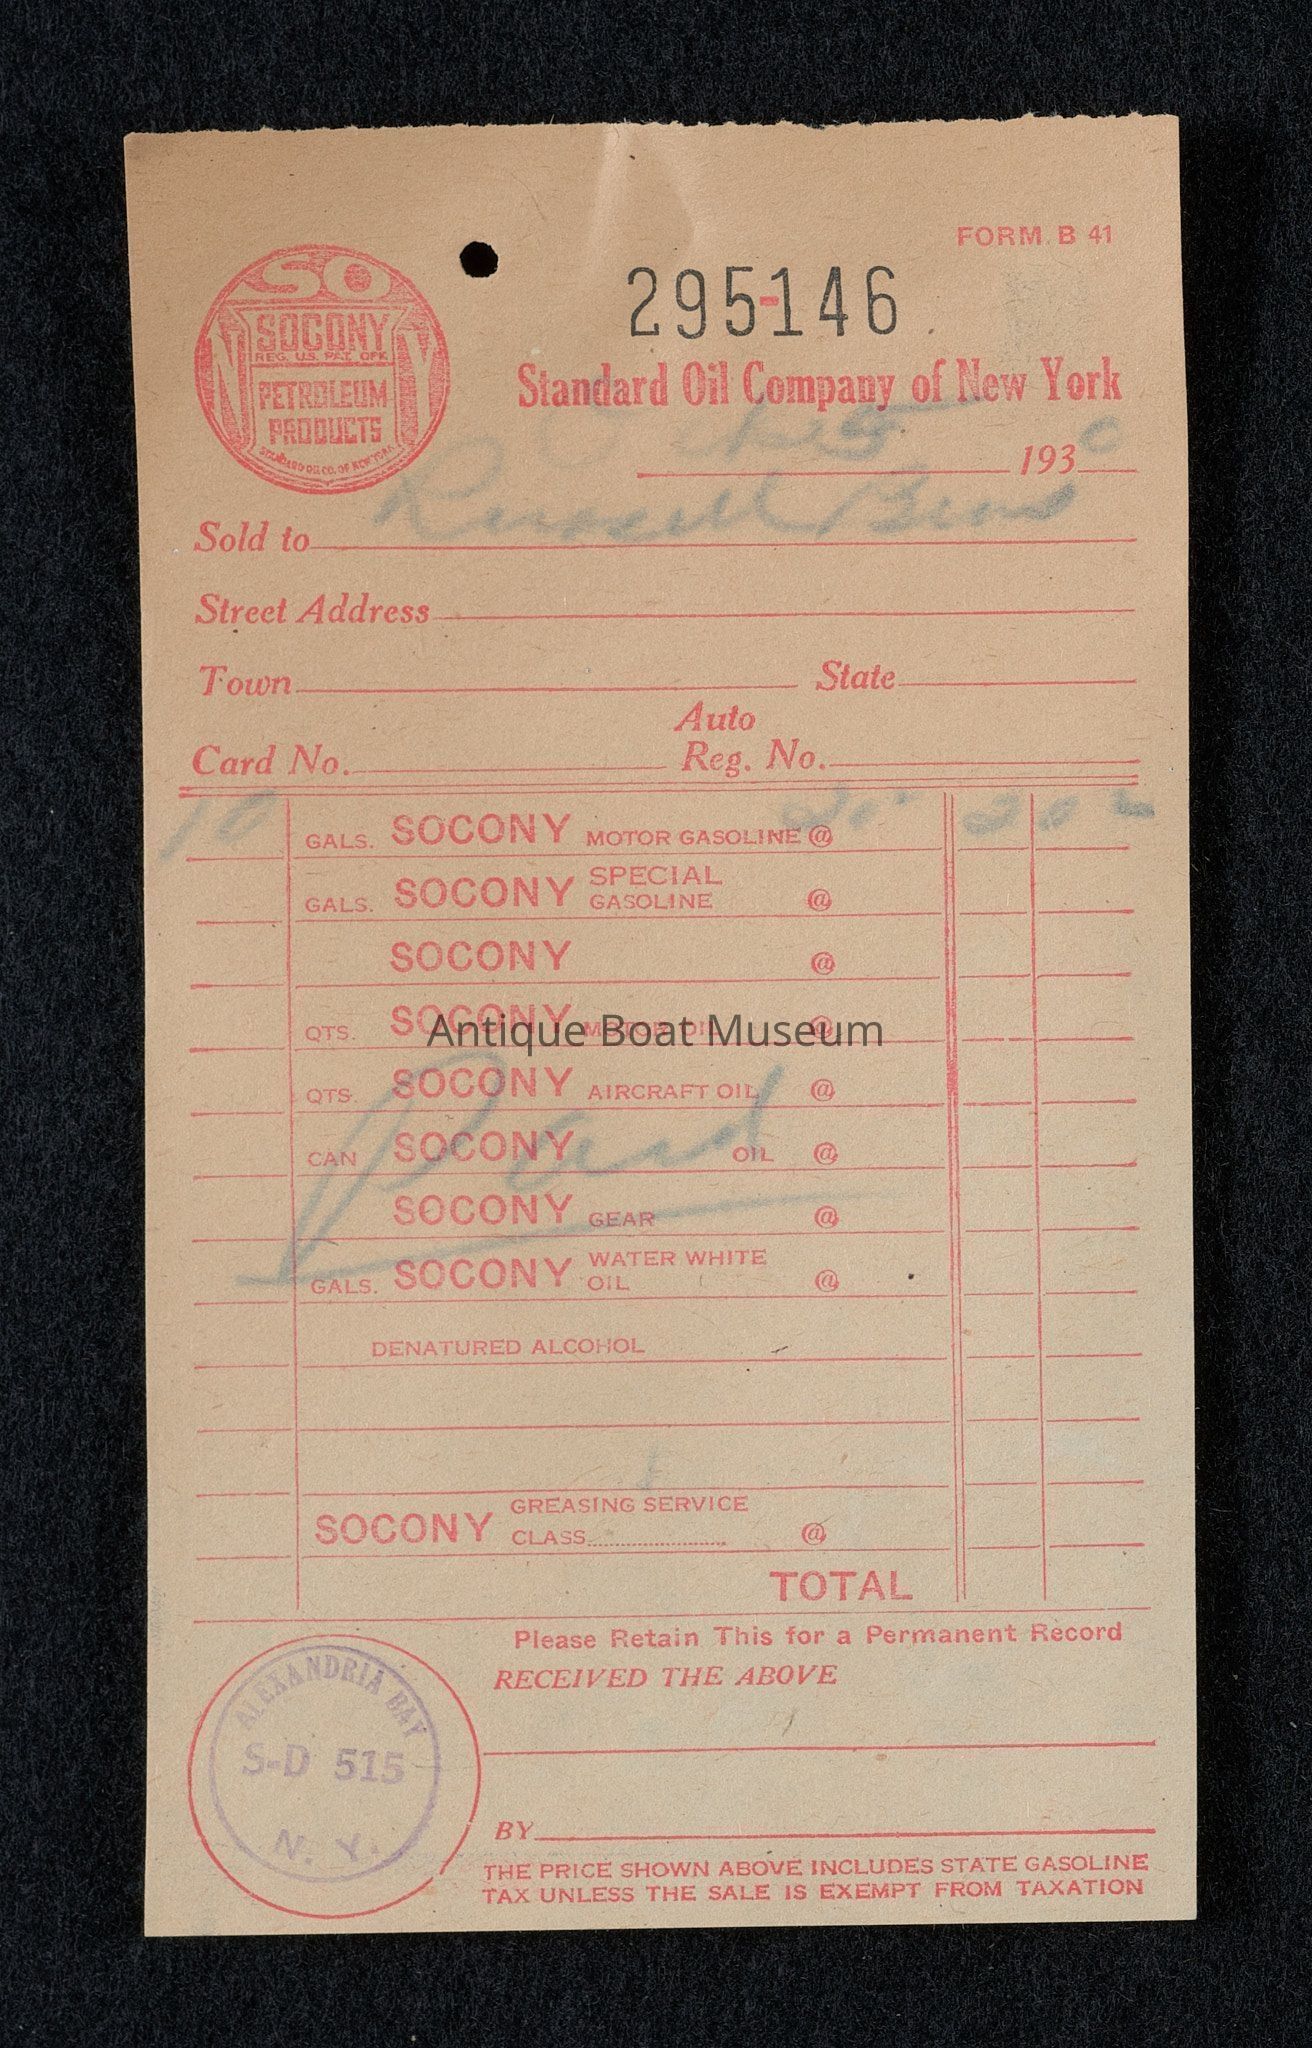 FORM. B 41
295-146
SO
NY
SOCONY
REG. U.S. PAT. OFF.
PETROLEUM
PRODUCTS
STANDARD OIL CO. OF NEW YORK
Standard Oil Company of New York
5 1930
Sold to Russell Bros
Street Address
Town State
Auto
Card No. Reg. No.
10 GALS. SOCONY MOTOR GASOLINE @ 20 2 0
GALS. SOCONY SPECIAL GASOLINE @
SOCONY @
QTS. SOCONY MOTOR OIL @
Antique Boat Museum
QTS. SOCONY AIRCRAFT OIL @
CAN SOCONY OIL @
Paid
SOCONY GEAR @
GALS. SOCONY WATER WHITE OIL @
DENATURED ALCOHOL
SOCONY GREASING SERVICE
CLASS @
TOTAL
Please Retain This for a Permanent Record
RECEIVED THE ABOVE
ALEXANDRIA BAY
S-D 515
N. Y.
BY
THE PRICE SHOWN ABOVE INCLUDES STATE GASOLINE
TAX UNLESS THE SALE IS EXEMPT FROM TAXATION